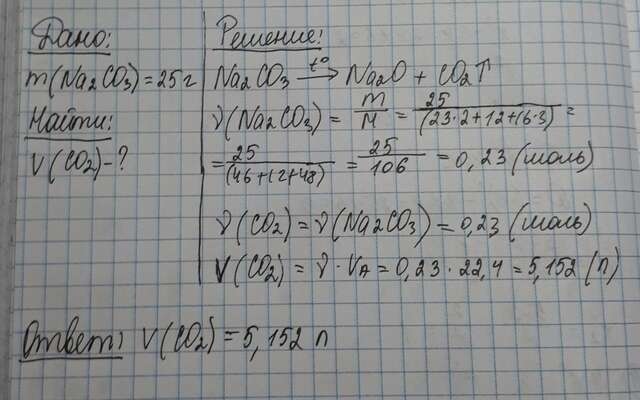 Дано:
m(Na2CO3)=25г
Найти:
V(CO2)-?
Решение:
Na2CO3 —t°→ Na2O + CO2↑
ν(Na2CO3) = m/M = 25/(23·2+12+(16·3) =
= 25/(46+12+48) = 25/106 = 0,23 (моль)
ν(CO2) = ν(Na2CO3) = 0,23 (моль)
V(CO2) = ν · VA = 0,23 · 22,4 = 5,152 (л)
Ответ: V(CO2) = 5,152 л